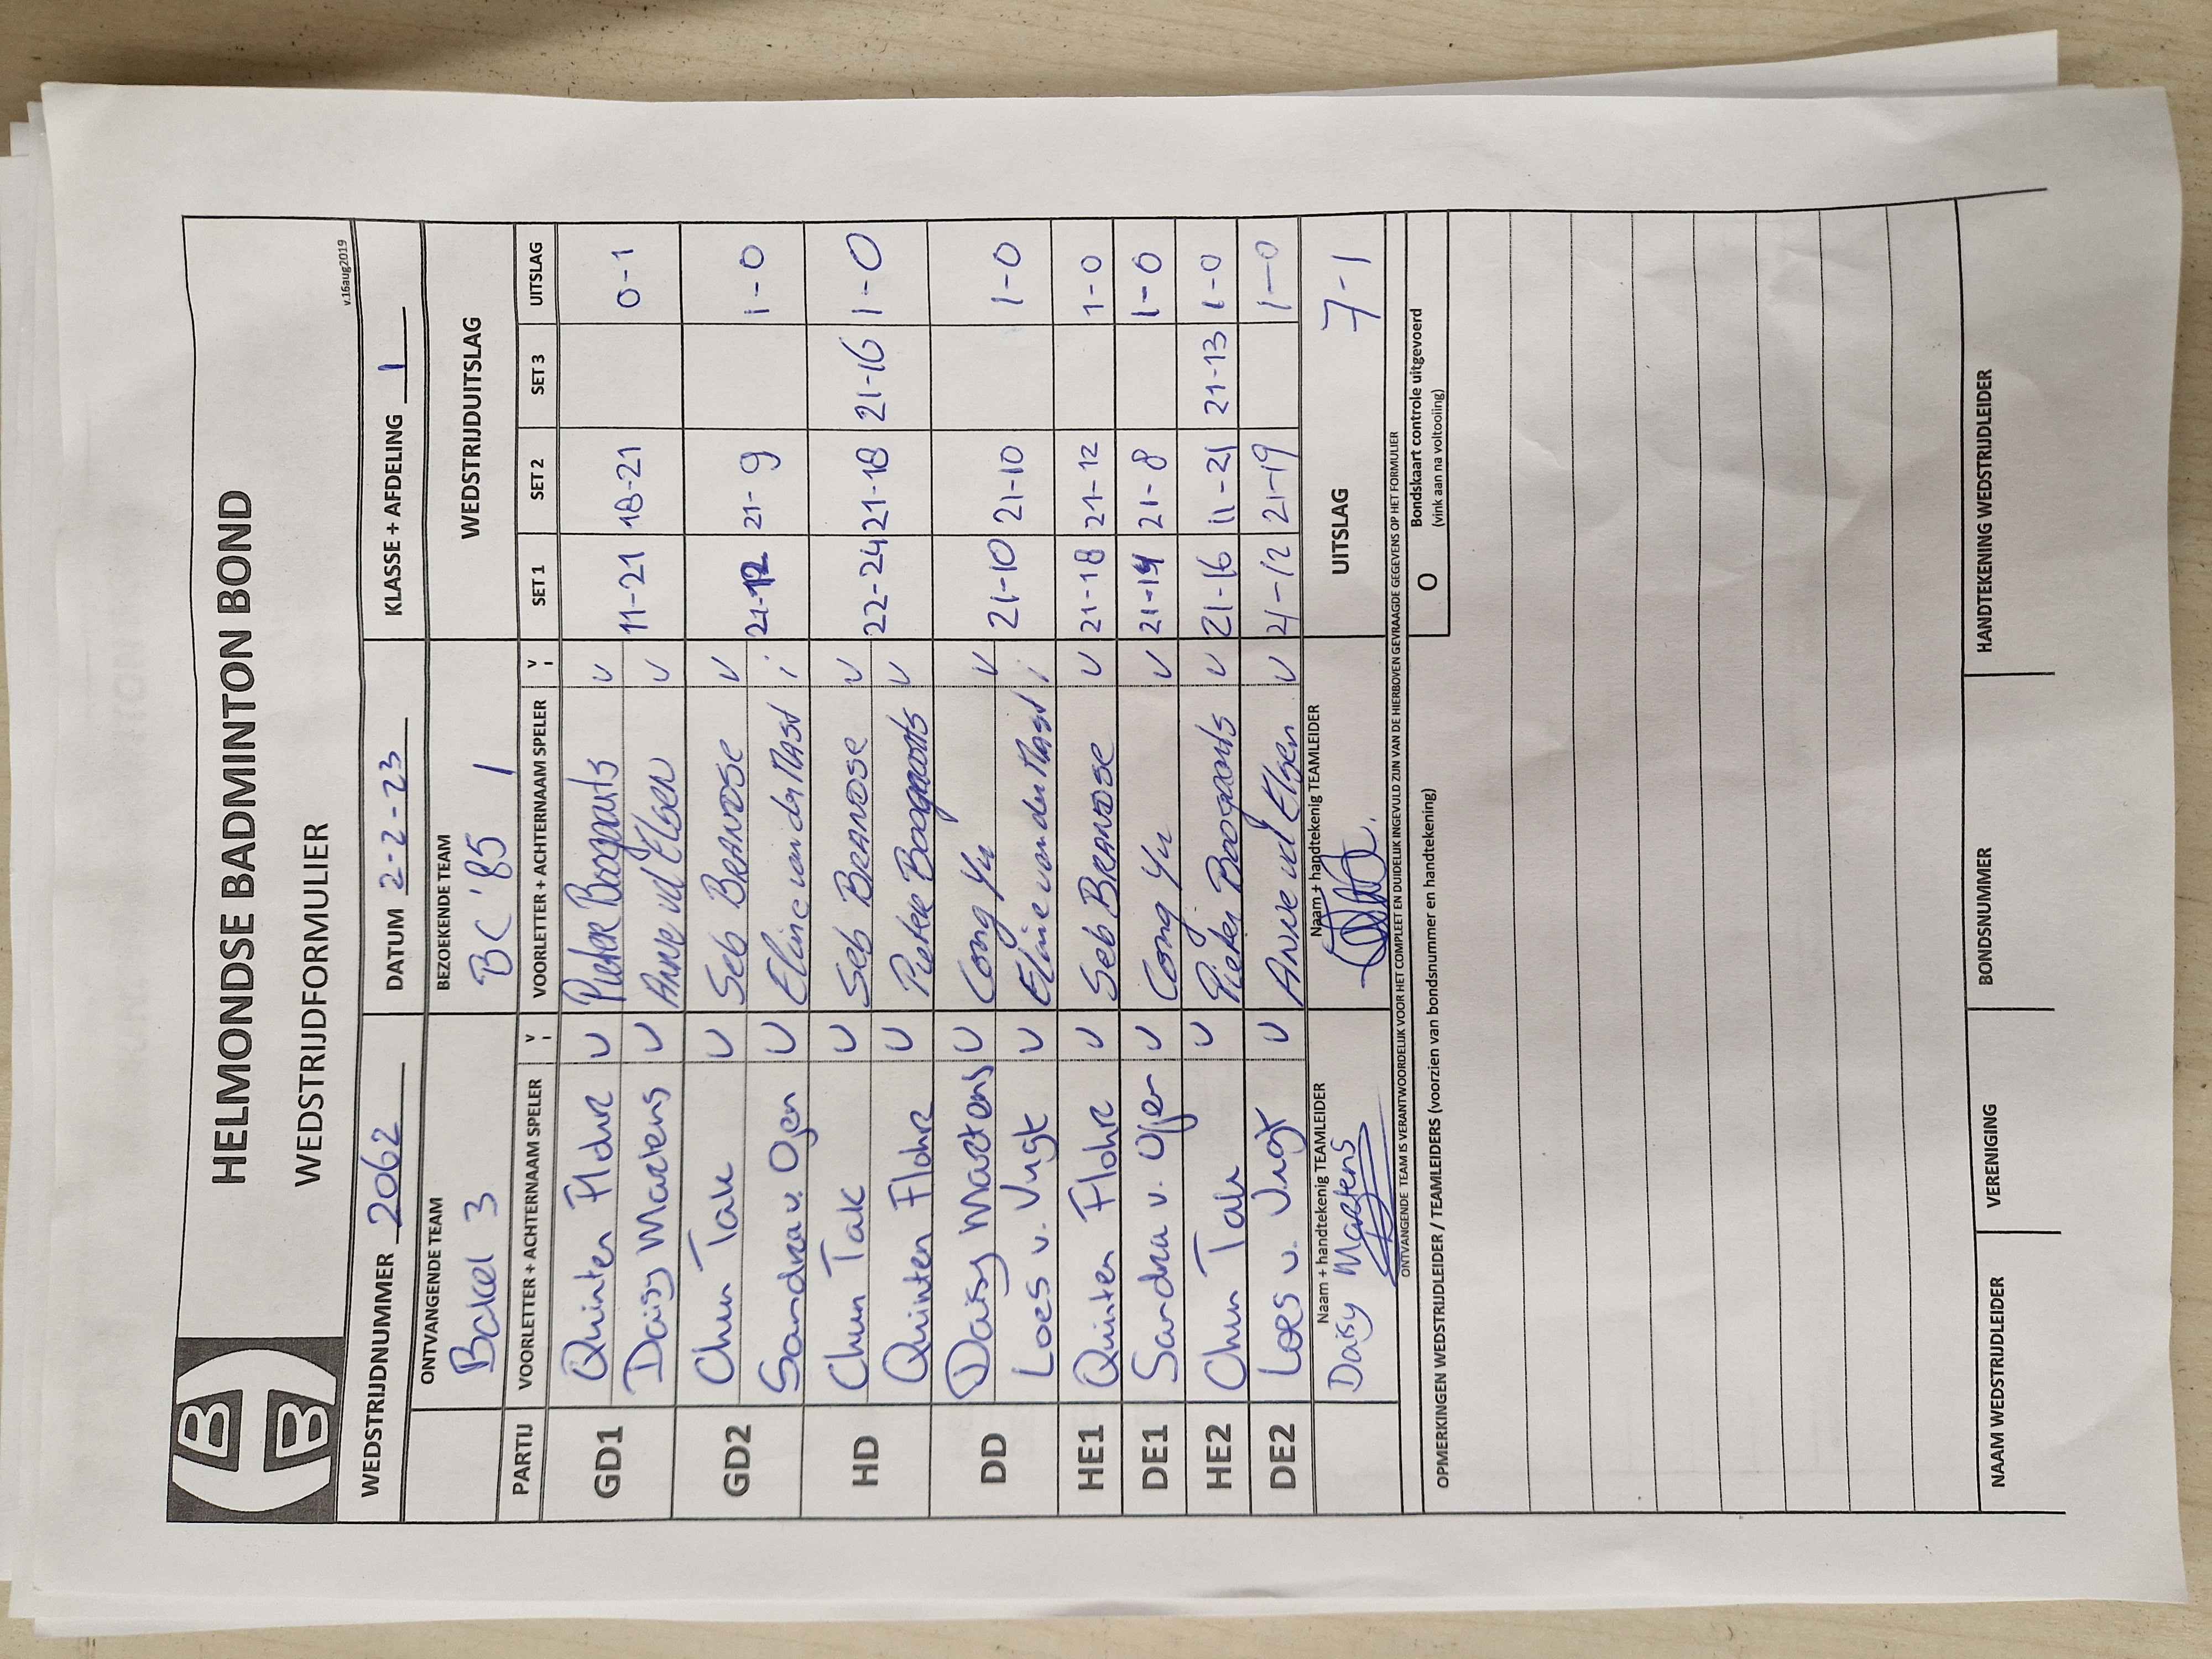 HELMONDSE BADMINTON BOND
WEDSTRIJDFORMULIER
v.16aug2019
WEDSTRIJDNUMMER 2062 DATUM 2-2-23 KLASSE + AFDELING 1
ONTVANGENDE TEAM BEZOEKENDE TEAM WEDSTRIJDUITSLAG
Bakel 3 BC '85 1
PARTIJ VOORLETTER + ACHTERNAAM SPELER V I VOORLETTER + ACHTERNAAM SPELER V I SET 1 SET 2 SET 3 UITSLAG
GD1 Quinten Flohr V Pieter Boogaarts V
Daisy Martens V Anne vd Elsen V 11-21 18-21 0-1
GD2 Chun Tak V Seb BRANDSE V
Sandra v. Ojen V Eline van der Mast i 21-12 21-9 1-0
HD Chun Tak V Seb BRANDSE V 22-24 21-18 21-16 1-0
Quinten Flohr V Pieter Boogaarts V
DD Daisy Martens V Cong Yu V
Loes v. Vugt V Eline van der Mast i 21-10 21-10 1-0
HE1 Quinten Flohr V Seb BRANDSE V 21-18 21-12 1-0
DE1 Sandra v. Ojen V Cong Yu V 21-14 21-8 1-0
HE2 Chun Tak V Pieter Boogaarts V 21-16 11-21 21-13 1-0
DE2 Loes v. Vugt V Anne vd Elsen V 21-12 21-19 1-0
Naam + handtekenig TEAMLEIDER Naam + handtekenig TEAMLEIDER UITSLAG 7-1
Daisy Martens
ONTVANGENDE TEAM IS VERANTWOORDELIJK VOOR HET COMPLEET EN DUIDELIJK INGEVULD ZIJN VAN DE HIERBOVEN GEVRAAGDE GEGEVENS OP HET FORMULIER
OPMERKINGEN WEDSTRIJDLEIDER / TEAMLEIDERS (voorzien van bondsnummer en handtekening) O Bondskaart controle uitgevoerd
(vink aan na voltooiing)
NAAM WEDSTRIJDLEIDER VERENIGING BONDSNUMMER HANDTEKENING WEDSTRIJDLEIDER